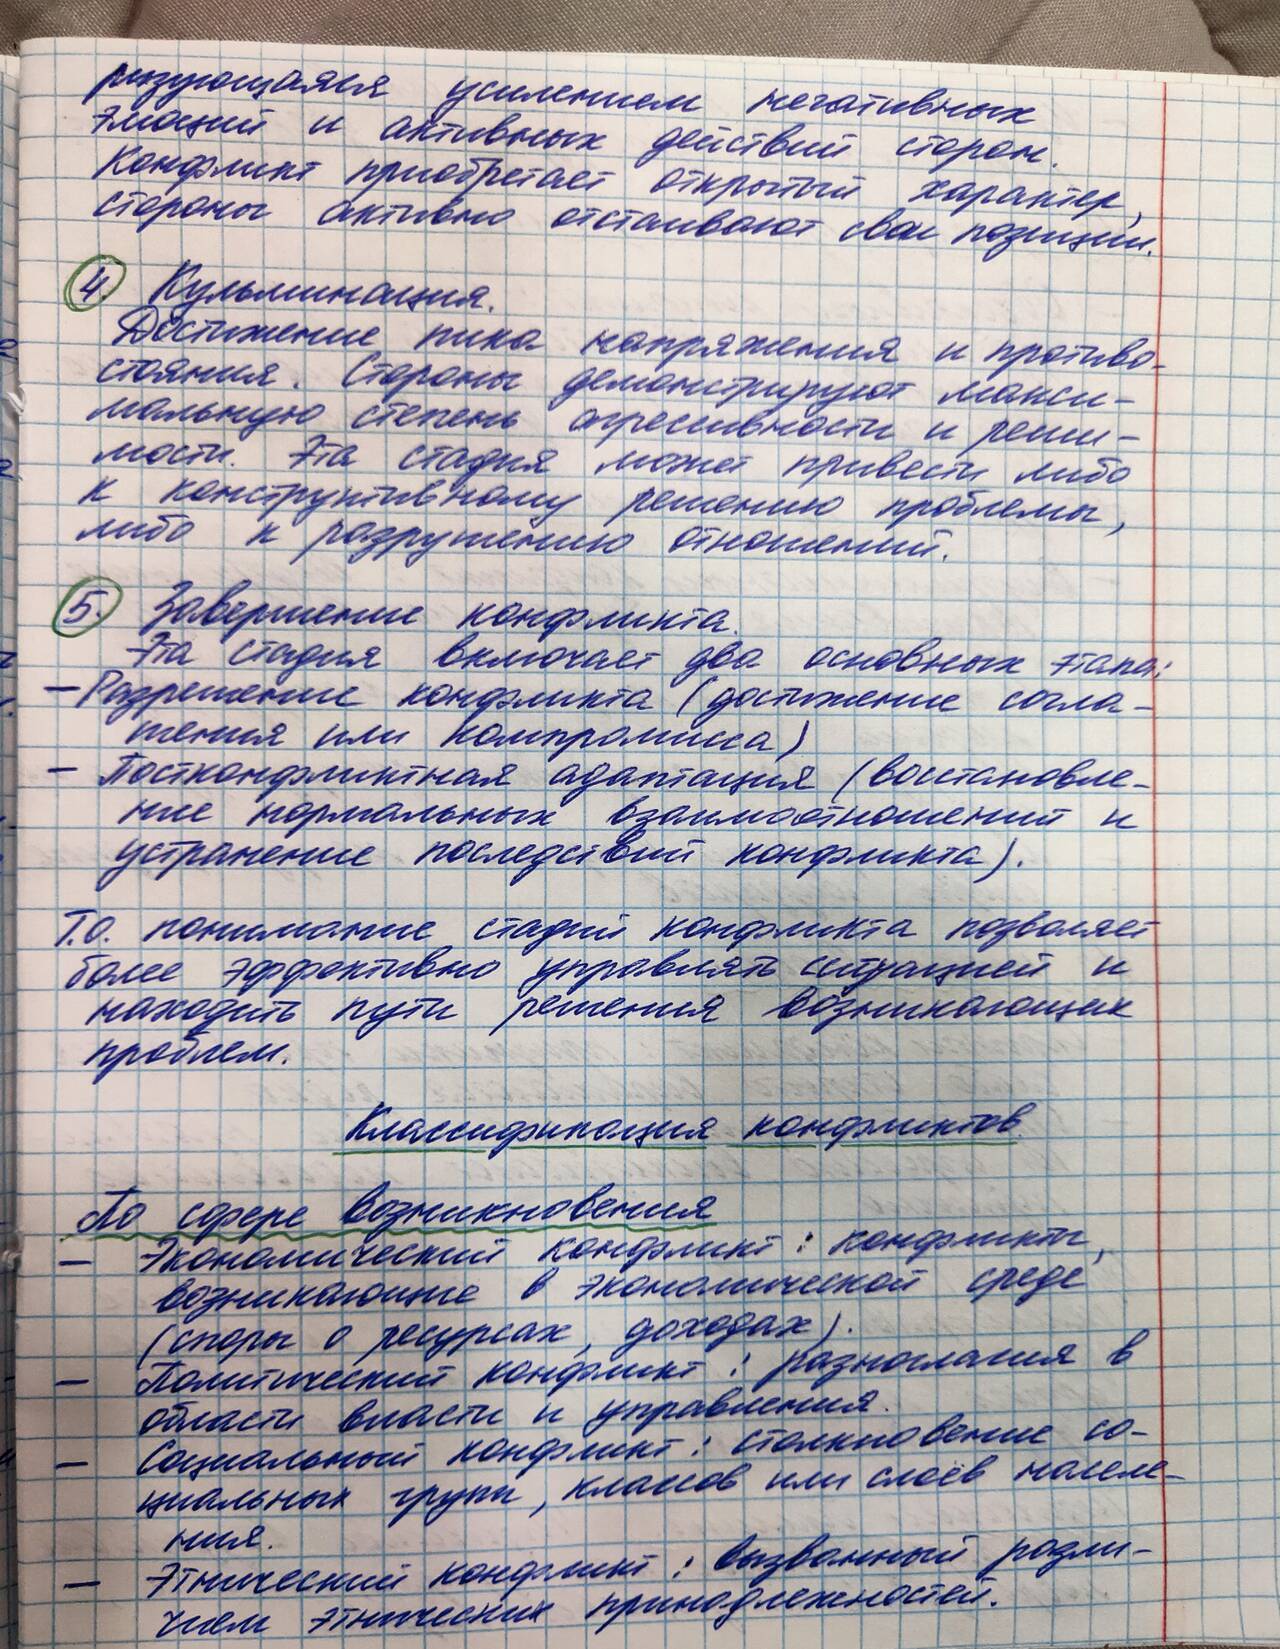 ризующаяся усилением негативных
эмоций и активных действий сторон.
Конфликт приобретает открытый характер,
стороны активно отстаивают свои позиции.
4. Кульминация.
Достижение пика напряжения и противо-
стояния. Стороны демонстрируют макси-
мальную степень агрессивности и реши-
мости. Эта стадия может привести либо
к конструктивному решению проблемы,
либо к разрушению отношений.
5. Завершение конфликта.
Эта стадия включает два основных этапа:
– Разрешение конфликта (достижение согла-
шения или компромисса)
– Постконфликтная адаптация (восстановле-
ние нормальных взаимоотношений и
устранение последствий конфликта).
Т.О. понимание стадий конфликта позволяет
более эффективно управлять ситуацией и
находить пути решения возникающих
проблем.
Классификация конфликтов
По сфере возникновения
– Экономический конфликт: конфликты,
возникающие в экономической среде
(споры о ресурсах, доходах).
– Политический конфликт: разногласия в
области власти и управления.
– Социальный конфликт: столкновение со-
циальных групп, классов или слоёв населе-
ния.
– Этнический конфликт: вызванный разли-
чием этнических принадлежностей.